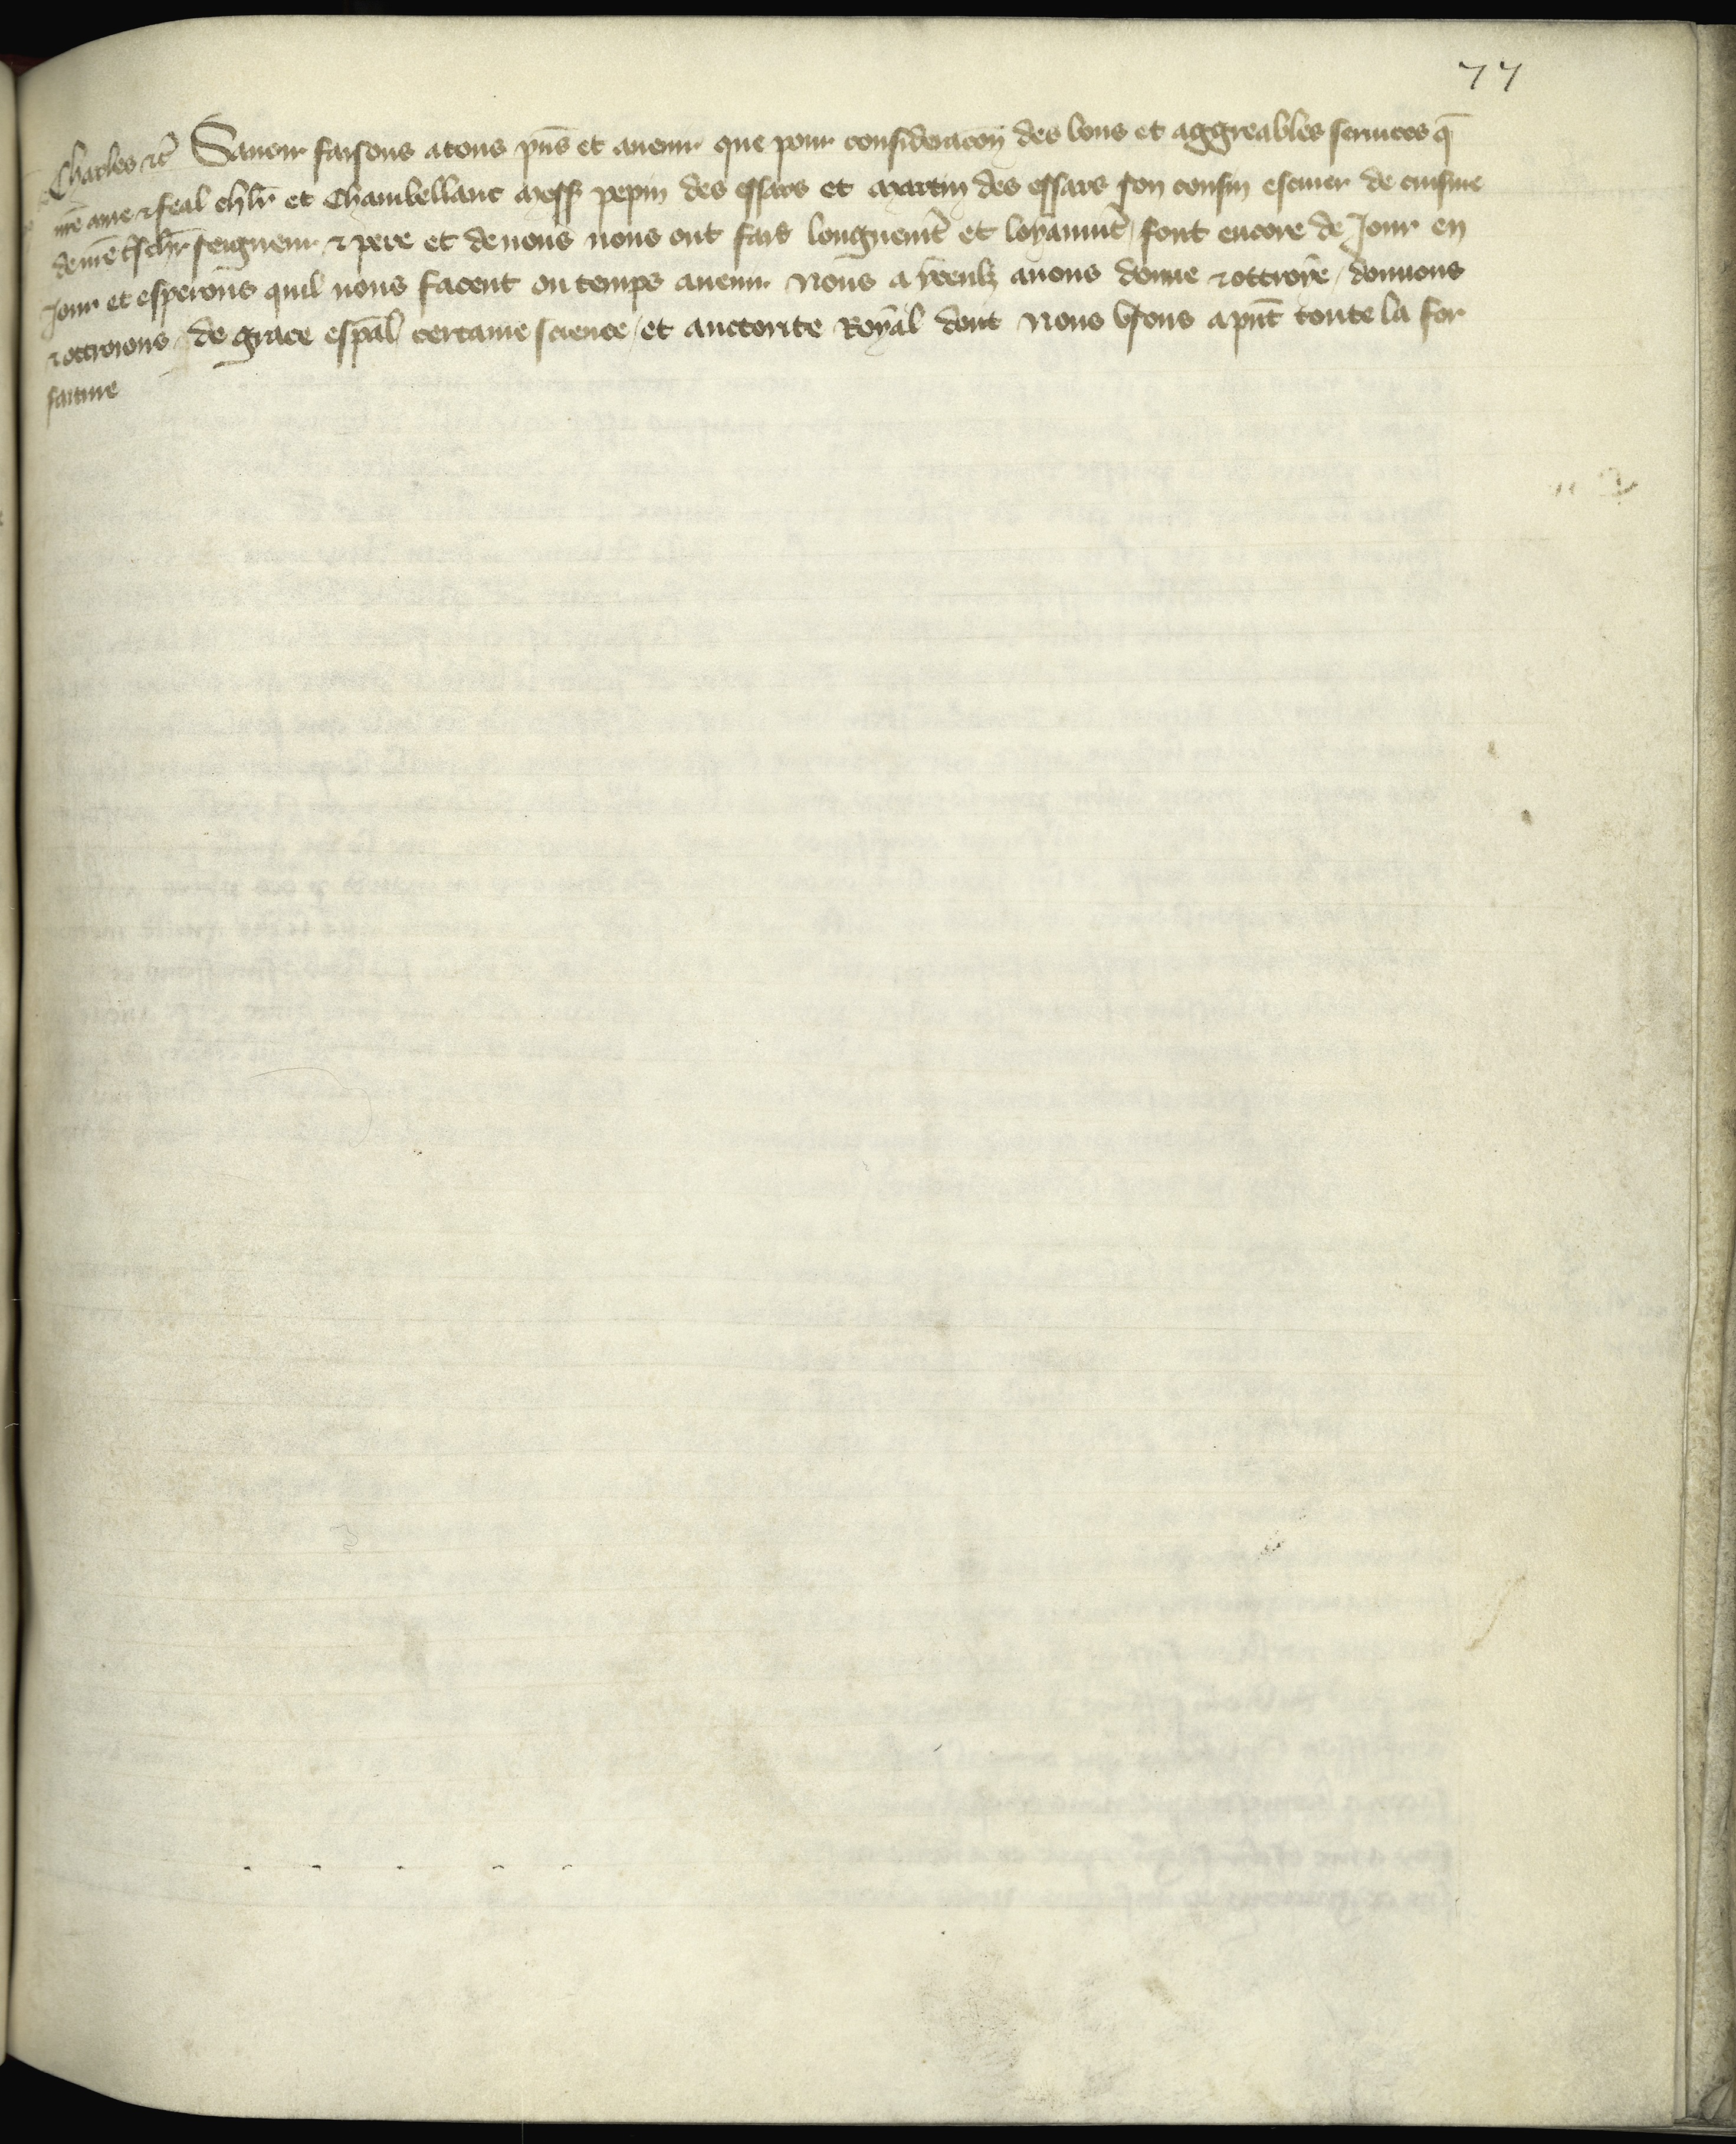 77
Charles ⁊c̃ Sauoir faisons atous pñs et auenir que pour consideracõn des bons et aggreables seruices q̃
nr̃e ame ⁊ feal chlr̃ et Chambellanc Mess pepin des essars et Martin des essars son cousin escuier de cuisine
de nr̃e t͂schr̃ seigneur ⁊ pere et de nous nous ont fais longuemt̃ et loyaumt̃ / font encore de Jour en
Jour et esperons quil nous facent ou temps auenir Nous a yceulz auons donne ⁊ ottroye / donnons
⁊ ottroions de grace esp̃al certaine science / et auctorite Royal dont Nous vsons apñt toute la for
faiture